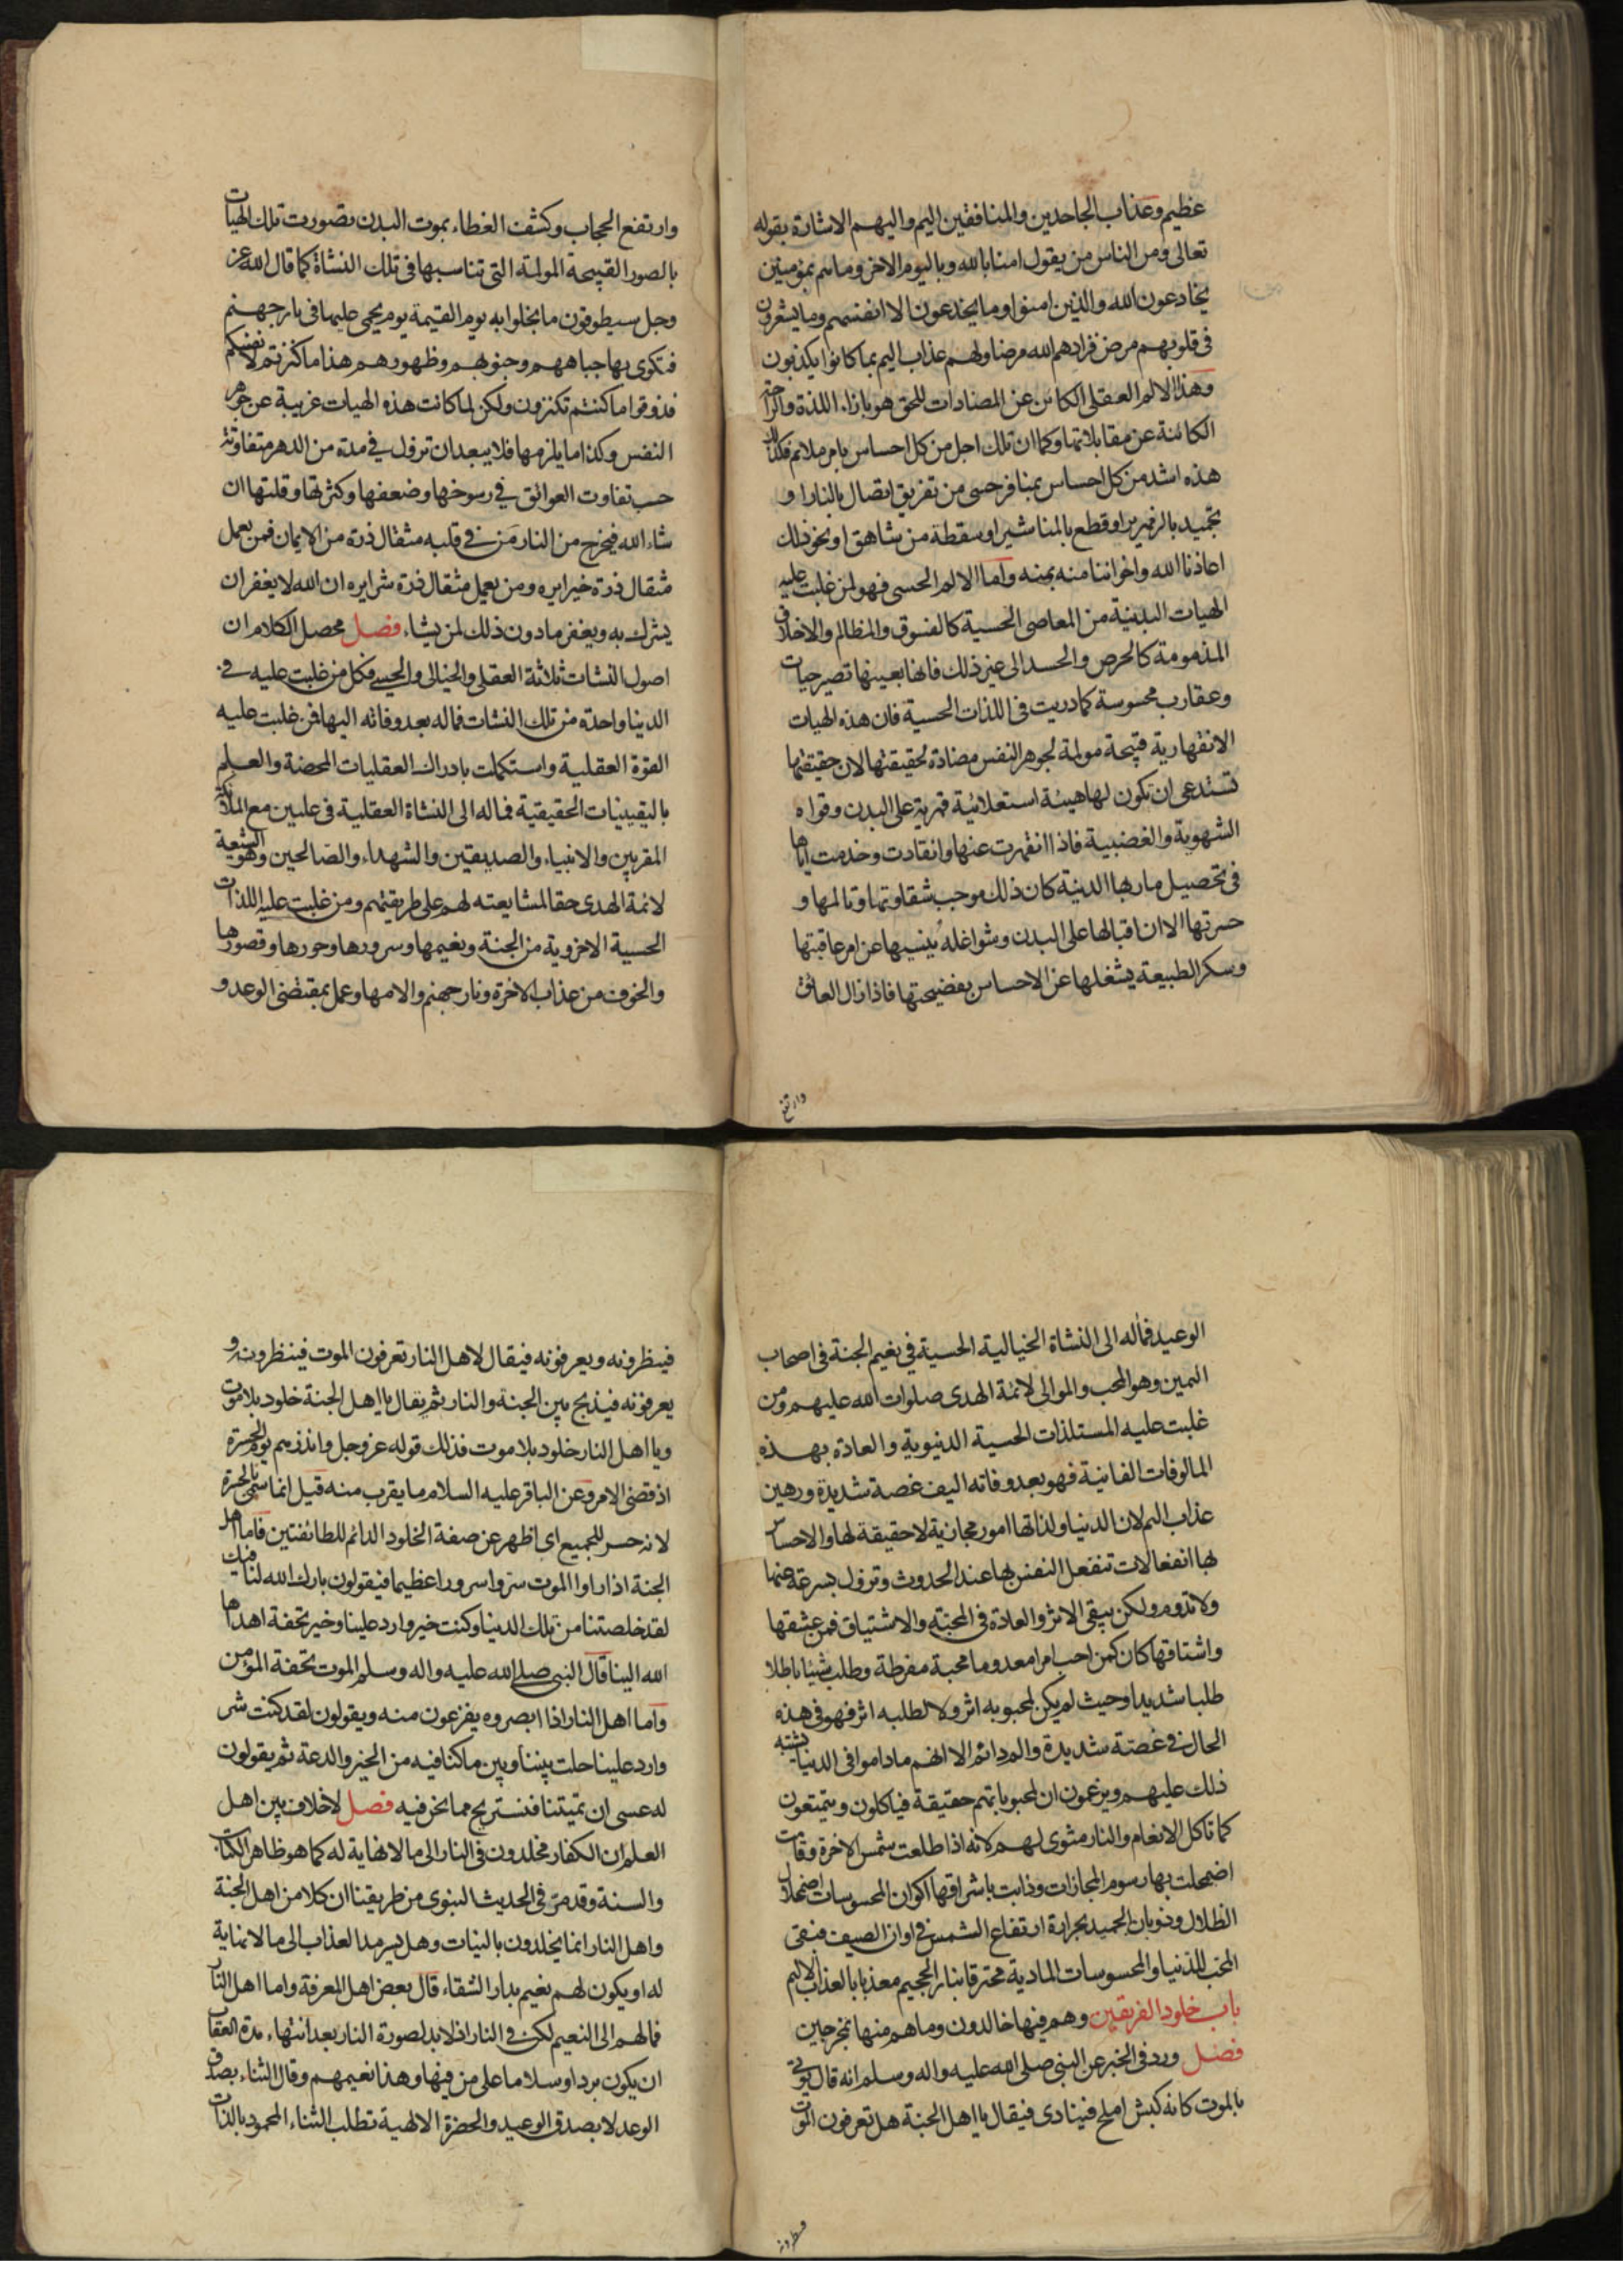 عظيم وعذاب الجاحدين والمنافقين اليم واليهم الاشارة بقوله
تعالى ومن الناس من يقول امنا بالله وباليوم الاخر وما هم بمؤمنين
يخادعون الله والذين امنوا وما يخدعون الا انفسهم وما يشعرون
فى قلوبهم مرض فزادهم الله مرضا ولهم عذاب اليم بما كانوا يكذبون
وهذا الالم العقلى الكائن عن المضادات للحق هو بازاء اللذة والراحة
الكائنة عن مقابلاتها وكما ان تلك اجل من كل احساس بامر ملائم فكذلك
هذه اشد من كل احساس بمنافر حسى من تفريق اتصال بالنار او
تجميد بالزمهرير او قطع بالمناشير او سقطة من شاهق او نحو ذلك
اعاذنا الله واخواننا منه بمنه واما الالم الحسى فهو لمن غلبت عليه
الهيات البدنية من المعاصى الحسية كالفسوق والمظالم والاخلاق
المذمومة كالحرص والحسد الى غير ذلك فانها بعينها تصير حيات
وعقارب محسوسة كما دريت فى اللذات الحسية فان هذه الهيات
الانقهارية قبيحة مولمة لجوهر النفس مضادة لحقيقتها لان حقيقتها
تستدعى ان تكون لها هيئة استعلائية قهرية على البدن وقواه
الشهوية والغضبية فاذا انقهرت عنها وانقادت وخدمت اياها
فى تحصيل ماربها الدنية كان ذلك موجب شقاوتها وتالمها و
حسرتها الا ان اقبالها على البدن وشواغله ينسيها عن امر عاقبتها
وسكر الطبيعة يشغلها عن الاحساس بفضيحتها فاذا زال العائق
وارتفع
وارتفع الحجاب وكشف الغطاء بموت البدن تصورت تلك الهيات
بالصور القبيحة المولمة التى تناسبها فى تلك النشاة كما قال الله عز
وجل سيطوقون ما بخلوا به يوم القيمة يوم يحمى عليها فى نار جهنم
فتكوى بها جباههم وجنوبهم وظهورهم هذا ما كنزتم لانفسكم
فذوقوا ما كنتم تكنزون ولكن لما كانت هذه الهيات غريبة عن جوهر
النفس وكذا ما يلزمها فلا يبعد ان تزول في مدة من الدهر متفاوتة
حسب تفاوت العوائق في رسوخها وضعفها وكثرتها وقلتها ان
شاء الله فيخرج من النار من في قلبه مثقال ذرة من الايمان فمن يعمل
مثقال ذرة خيرا يره ومن يعمل مثقال ذرة شرا يره ان الله لا يغفر ان
يشرك به ويغفر ما دون ذلك لمن يشاء فصل محصل الكلام ان
اصول النشات ثلاثة العقلى والخيالى والحسى فكل من غلبت عليه فى
الدنيا واحدة من تلك النشات فماله بعد وفاته اليها فمن غلبت عليه
القوة العقلية واستكملت بادراك العقليات المحضة والعلم
باليقينيات الحقيقية فماله الى النشاة العقلية فى عليين مع الملائكة
المقربين والانبياء والصديقين والشهداء والصالحين وهو الشيعة
لائمة الهدى حقا لمشايعته لهم على طريقتهم ومن غلبت عليه اللذات
الحسية الاخروية من الجنة ونعيمها وسرورها وحورها وقصورها
والخوف من عذاب الاخرة ونار جهنم والامها وعمل بمقتضى الوعد و
الوعيد فماله الى النشاة الخيالية الحسية في نعيم الجنة فى اصحاب
اليمين وهو المحب والموالى لائمة الهدى صلوات الله عليهم ومن
غلبت عليه المستلذات الحسية الدنيوية والعادة بهذه
المالوفات الفانية فهو بعد وفاته اليف غصة شديدة ورهين
عذاب اليم لان الدنيا ولذاتها امور مجازية لا حقيقة لها والاحساس
بها انفعالات تنفعل النفس بها عند الحدوث وتزول بسرعة عنها
ولا تدوم ولكن يبقى الاثر والعادة فى المحبة والاشتياق فمن عشقها
واشتاقها كان كمن احب امرا معدوما محبة مفرطة وطلب شيئا باطلا
طلبا شديدا وحيث لم يكن لمحبوبه اثر ولا لطلبه اثر فهو فى هذه
الحال في غصة شديدة والم دائم الا انهم ماداموا فى الدنيا يشتبه
ذلك عليهم ويزعمون ان لمحبوباتهم حقيقة فياكلون ويتمتعون
كما تاكل الانعام والنار مثوى لهم لانه اذا طلعت شمس الاخرة وقامت
اضمحلت بها رسوم المجازات وذابت باشراقها اكوان المحسوسات اضمحلال
الظلال وذوبان الجميد بحرارة ارتفاع الشمس في اوان الصيف فبقى
المحب للدنيا والمحسوسات المادية محترقا بنار الجحيم معذبا بالعذاب الاليم
باب خلود الفريقين وهم فيها خالدون وما هم منها بمخرجين
فصل ورد فى الخبر عن النبى صلى الله عليه واله وسلم انه قال يؤتى
بالموت كانه كبش املح فينادى فيقال يا اهل الجنة هل تعرفون الموت
فينظرونه
فينظرونه ويعرفونه فيقال لاهل النار تعرفون الموت فينظرونه و
يعرفونه فيذبح بين الجنة والنار ثم يقال يا اهل الجنة خلود بلا موت
ويا اهل النار خلود بلا موت فذلك قوله عز وجل وانذرهم يوم الحسرة
اذ قضى الامر وعن الباقر عليه السلام ما يقرب منه قيل انما سمى بالحسرة
لانه حسر للجميع اى اظهر عن صفة الخلود الدائم للطائفتين فاما اهل
الجنة اذا راوا الموت سروا سرورا عظيما فيقولون بارك الله لنا فيك
لقد خلصتنا من تلك الدنيا وكنت خير وارد علينا وخير تحفة اهداها
الله الينا قال النبى صلى الله عليه واله وسلم الموت تحفة المؤمن
واما اهل النار اذا ابصروه يفزعون منه ويقولون لقد كنت شر
وارد علينا حلت بيننا وبين ما كنا فيه من الخير والدعة ثم يقولون
له عسى ان تميتنا فنستريح مما نحن فيه فصل لا خلاف بين اهل
العلم ان الكفار مخلدون فى النار الى ما لا نهاية له كما هو ظاهر الكتاب
والسنة وقد مر فى الحديث النبوى من طريقنا ان كلا من اهل الجنة
واهل النار انما يخلدون بالنيات وهل يسرمد العذاب الى ما لا نهاية
له او يكون لهم نعيم بدار الشقاء قال بعض اهل المعرفة واما اهل النار
فمالهم الى النعيم لكن في النار اذ لابد لصورة النار بعد انتهاء مدة العقاب
ان يكون بردا وسلاما على من فيها وهذا نعيمهم وقال الثناء بصدق
الوعد لا بصدق الوعيد والحضرة الالهية تطلب الثناء المحمود بالذات